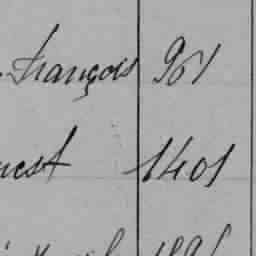 François 961
nest 1401